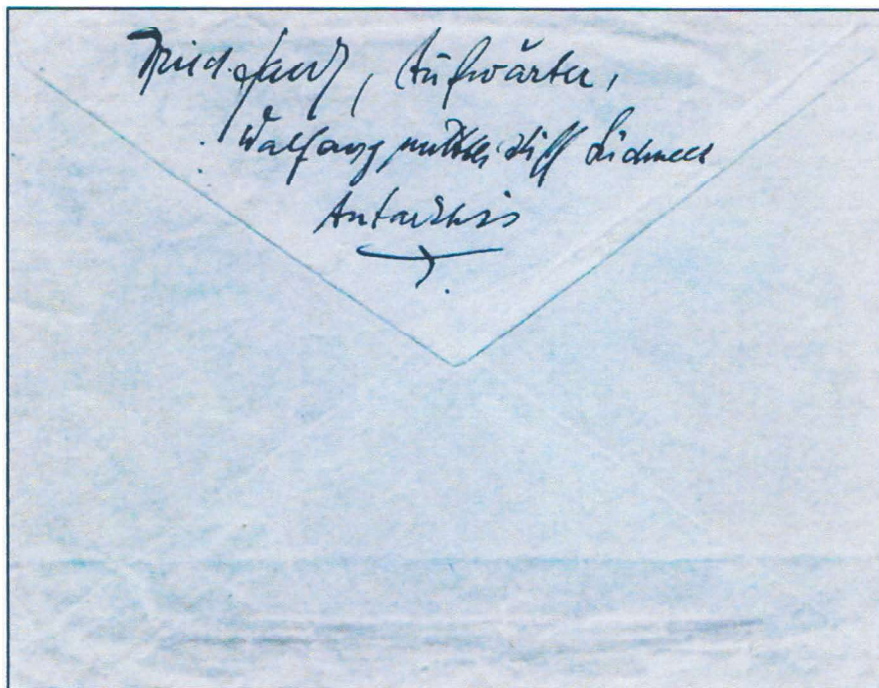 Fried. , Aufwärter,
Walfangmutterschiff Südmeer
Antarktis